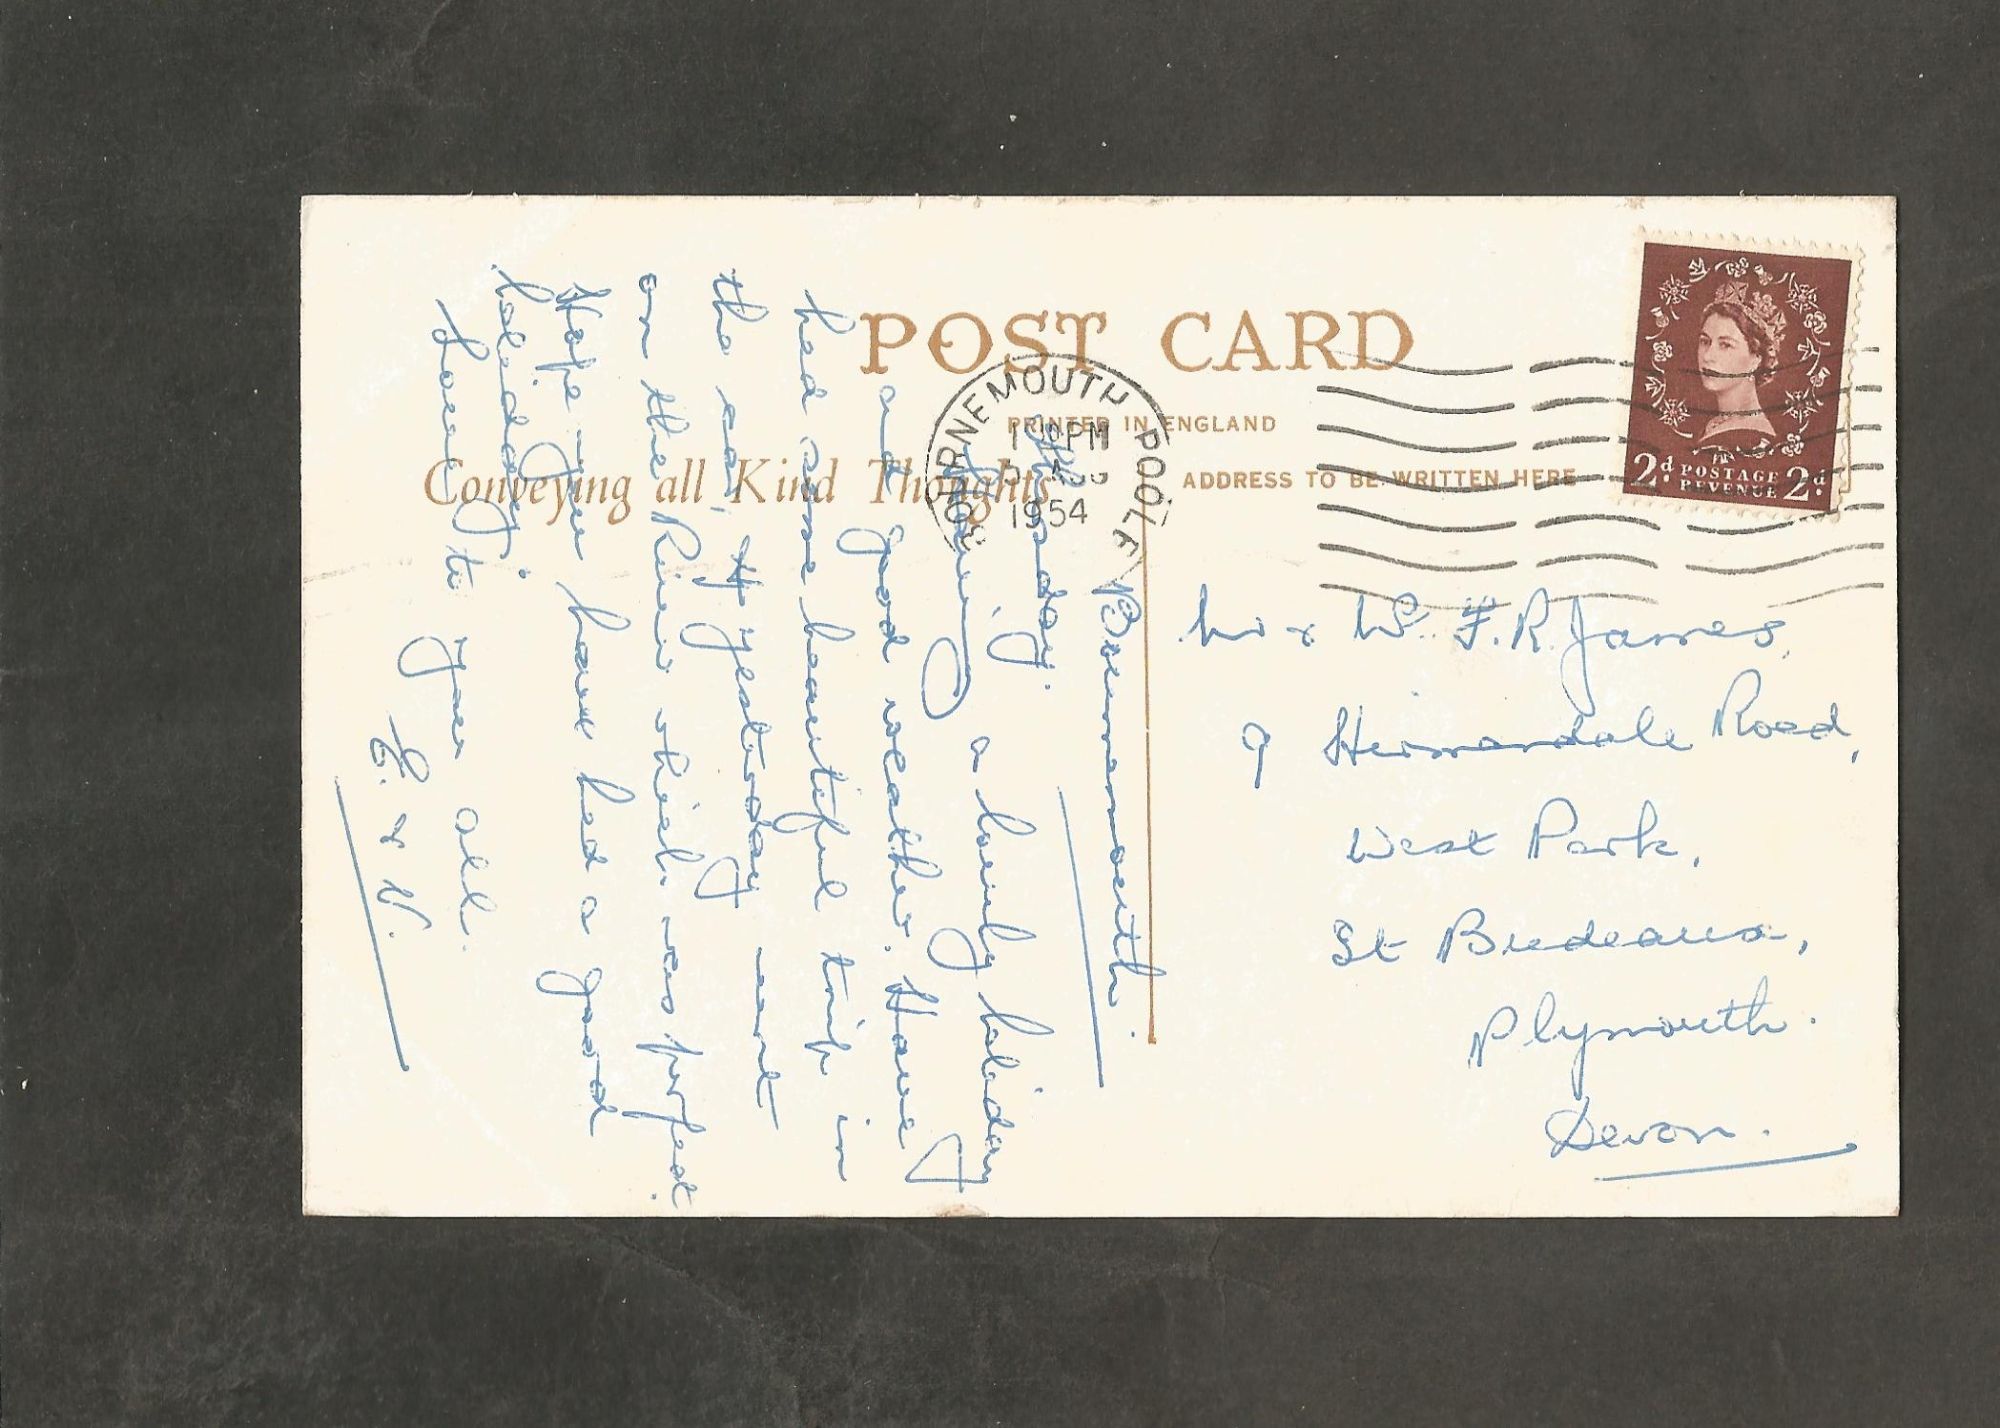 POST CARD
PRINTED IN ENGLAND
Conveying all Kind Thoughts
ADDRESS TO BE WRITTEN HERE
BOURNEMOUTH POOLE
PM
AUG
1954
2d POSTAGE 2d
REVENUE
Bournemouth.
Thursday.
Having a lovely holiday
and good weather. Have
had some beautiful trip in
the car, yesterday went
on the River which was perfect.
Hope you have had a good
holiday.
Love to you all.
E. & V.
Mr & W. F. R. James,
9 Hirmandale Road,
West Park,
St Budeaux,
Plymouth.
Devon.